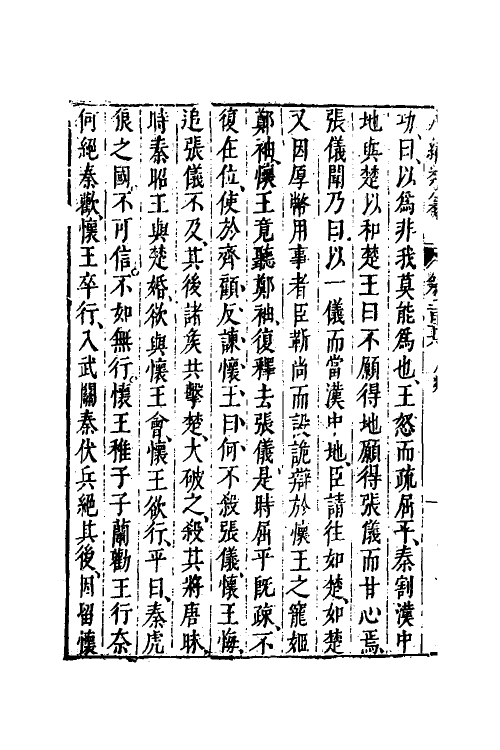 功曰以爲非我莫能爲也王怒而疏屈平秦割漢中
地與楚以和楚王曰不願得地願得張儀而甘心焉
張儀聞乃曰以一儀而當漢中地臣請往如楚如楚
又因厚幣用事者臣靳尚而設詭辯於懷王之寵姬
鄭袖懷王竟聽鄭袖復釋去張儀是時屈平旣疎不
復在位使於齊顧反諫懷王曰何不殺張儀懷王悔
追張儀不及其後諸矦共擊楚大破之殺其將唐昧
時秦昭王與楚婚欲與懷王會懷王欲行平曰秦虎
狼之國不可信不如無行懷王稚子子蘭勸王行奈
何絕秦歡懷王卒行入武關秦伏兵絕其後因留懷